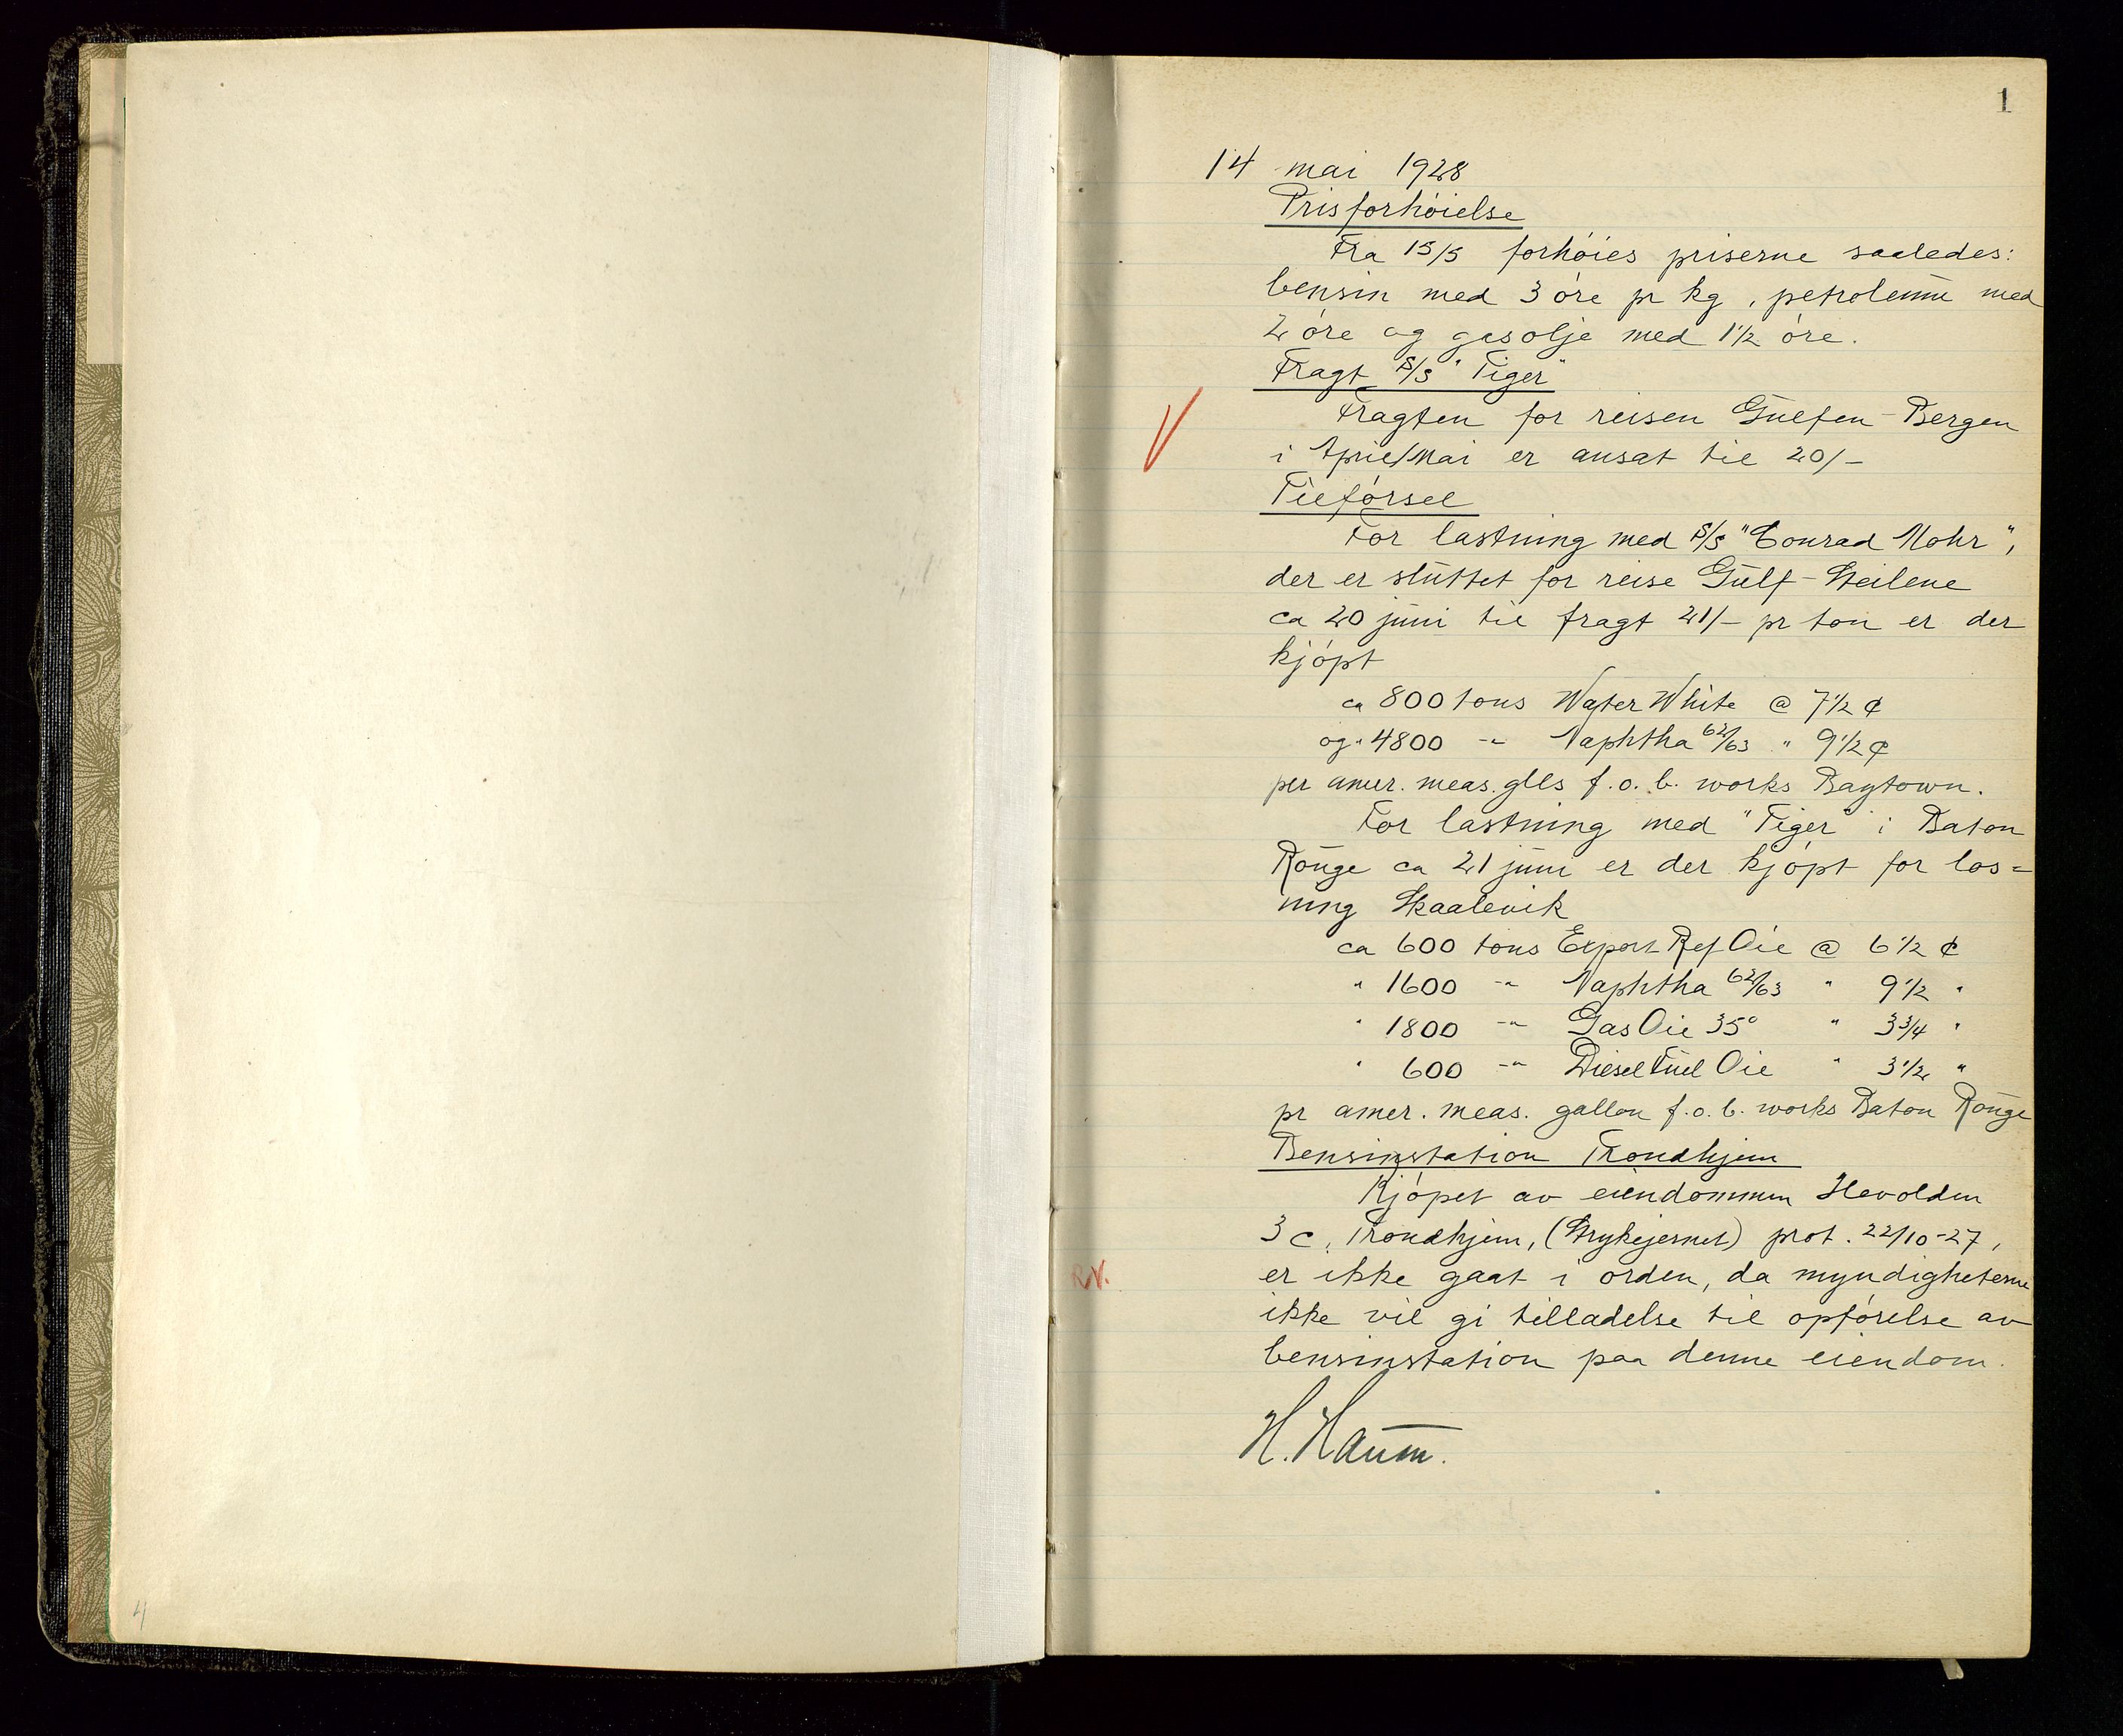 1
14 mai 1928
Prisforhøielse
Fra 15/5 forhøies priserne saaledes:
bensin med 3 øre pr kg, petroleum med
2 øre og gasolje med 1½ øre.
Fragt S/S "Tiger"
Fragten for reisen Gulfen-Bergen
i April/Mai er ansat til 20/-
Tilførsel
For lastning med S/S "Conrad Mohr",
der er sluttet for reise Gulf-Steilene
ca 20 juni til fragt 21/- pr ton er der
kjøpt
ca 800 tons Water White @ 7½ ¢
og " 4800 -"- Naphtha 62/63 " 9½ ¢
per amer. meas. glls f.o.b. works Baytown.
For lastning med "Tiger" i Baton
Rouge ca 21 juni er der kjøpt for los=
ning Skaalevik
ca 600 tons Export Ref Oil @ 6½ ¢
" 1600 -"- Naphtha 62/63 " 9½ "
" 1800 -"- Gas Oil 35° " 3¾ "
" 600 -"- Diesel Fuel Oil " 3½ "
pr amer. meas. gallon f.o.b. works Baton Rouge
Bensinstation Trondhjem
Kjøpet av eiendommen Ilevolden
3 c, Trondhjem, (Strykejernet) prot. 22/10-27,
R.N.
er ikke gaat i orden, da myndigheterne
ikke vil gi tilladelse til opførelse av
bensinstation paa denne eiendom.
H. Haum.
4